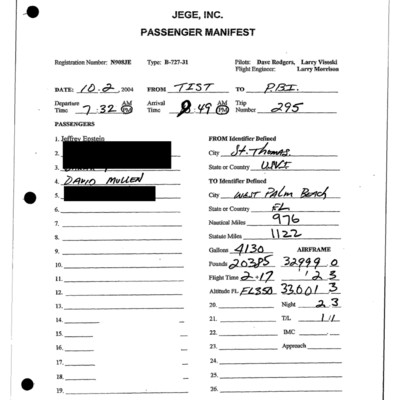 JEGE, INC.
PASSENGER MANIFEST
Registration Number: N908JE Type: B-727-31 Pilots: Dave Rodgers, Larry Visoski
Flight Engineer: Larry Morrison
DATE: 10.2, 2004 FROM TIST TO P.B.I.
Departure Time 7:32 AM PM Arrival Time 9:49 AM PM Trip Number 295
PASSENGERS
1. Jeffrey Epstein FROM Identifier Defined
2. City St. Thomas.
3. State or Country USVI
4. DAVID MULLEN TO Identifier Defined
5. City WEST PALM BEACH
6. State or Country FL
7. Nautical Miles 976
8. Statute Miles 1122
9. Gallons 4130 AIRFRAME
10. Pounds 20385 32999 0
11. Flight Time 2.17 2 3
12. Altitude FL FL350 33,001 3
13. 20. Night 2 3
14. 21. T/L 1/1
15. 22. IMC
16. 23. Approach
17. 24.
18. 25.
19. 26.